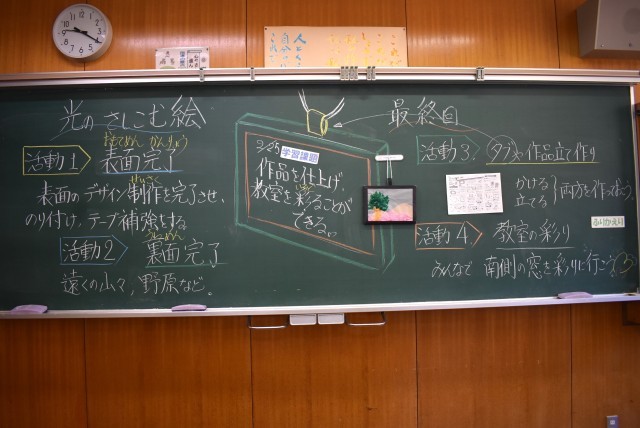 光のさしこむ絵
最終回
活動1
おもてめん かんりょう
表面完了
表面のデザイン制作を完了させ、
のり付け、テープ補強をする
活動2
裏面完了
遠くの山々、野原など。
3/25
学習課題
作品を仕上げ、
教室を彩ることが
できる。
活動3
タグや作品立て作り
かける
立てる
両方を作っておこう
ふりかえり
活動4
教室の彩り
みんなで 南側の窓を彩りに行こう